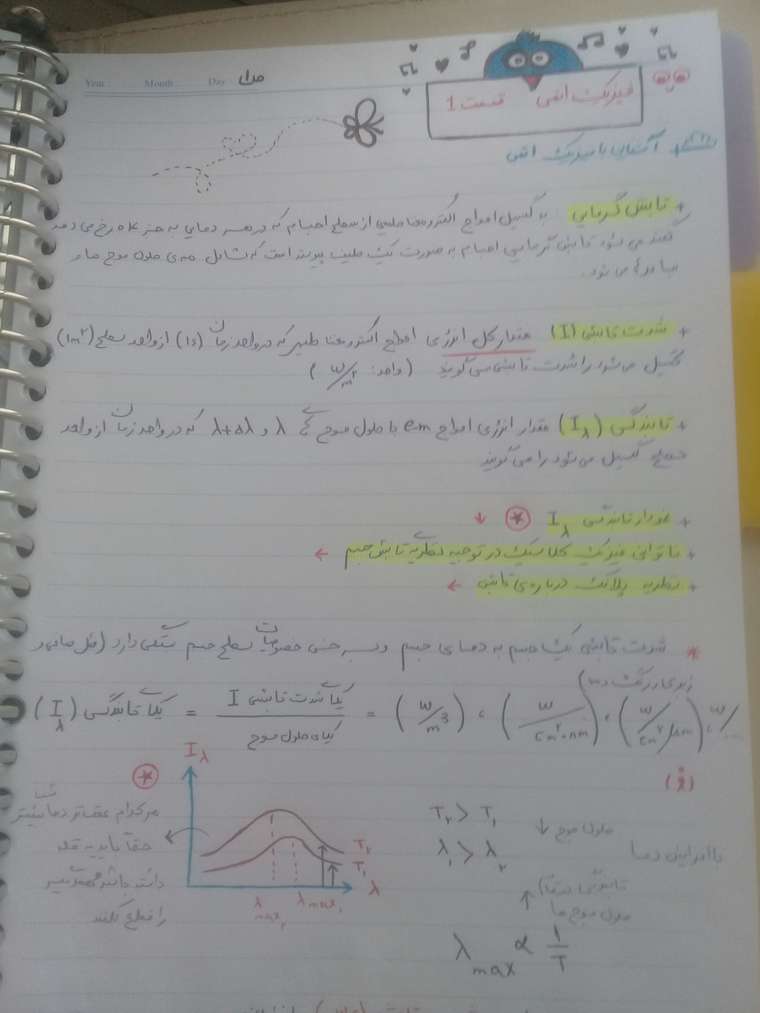 Year: Month: Day:
فیزیک اتمی قسمت 1
آشنایی با فیزیک اتمی
+ تابش گرمایی به گسیل امواج الکترومغناطیسی از سطح اجسام که در هر دمایی به جز ok رخ می دهد
گفته می شود تابش گرمایی اجسام به صورت یک طیف پیوسته است که شامل همه ی طول موج ها و
می شود.
+ شدت تابشی (I) مقدار کل انرژی امواج الکترومغناطیس که در واحد زمان (1s) از واحد سطح (1m²)
گسیل می شود را شدت تابشی می گویند (واحد: W/m²)
+ تابندگی (Iλ) مقدار انرژی امواج e.m با طول موج های λ و λ+Δλ که در واحد زمان از واحد
سطح گسیل می شود را می گویند
+ نمودار تابندگی Iλ ↓
+ ناتوانی فیزیک کلاسیک در توجیه نظریه تابش جسم ←
+ نظریه پلانک درباره ی تابش ←
* شدت تابشی یک جسم به دمای جسم و جنس خصوصیات سطح جسم بستگی دارد (مثل صافی و
زبری و رنگ و ...)
یکای تابندگی (Iλ) = یکای شدت تابشی I / یکای طول موج = (W/m³) ، (W/cm²·nm) ، (W/cm²/μm)
Iλ
هرکدام عضله دما بیشتر
حتما باید به قله
را قطع کنند
T₂
T₁
λ
λmax₂ λmax₁
با افزایش دما
T₂ > T₁
طول موج ↓
λ₁ > λ₂
طول موج ها
λmax ∝ 1/T